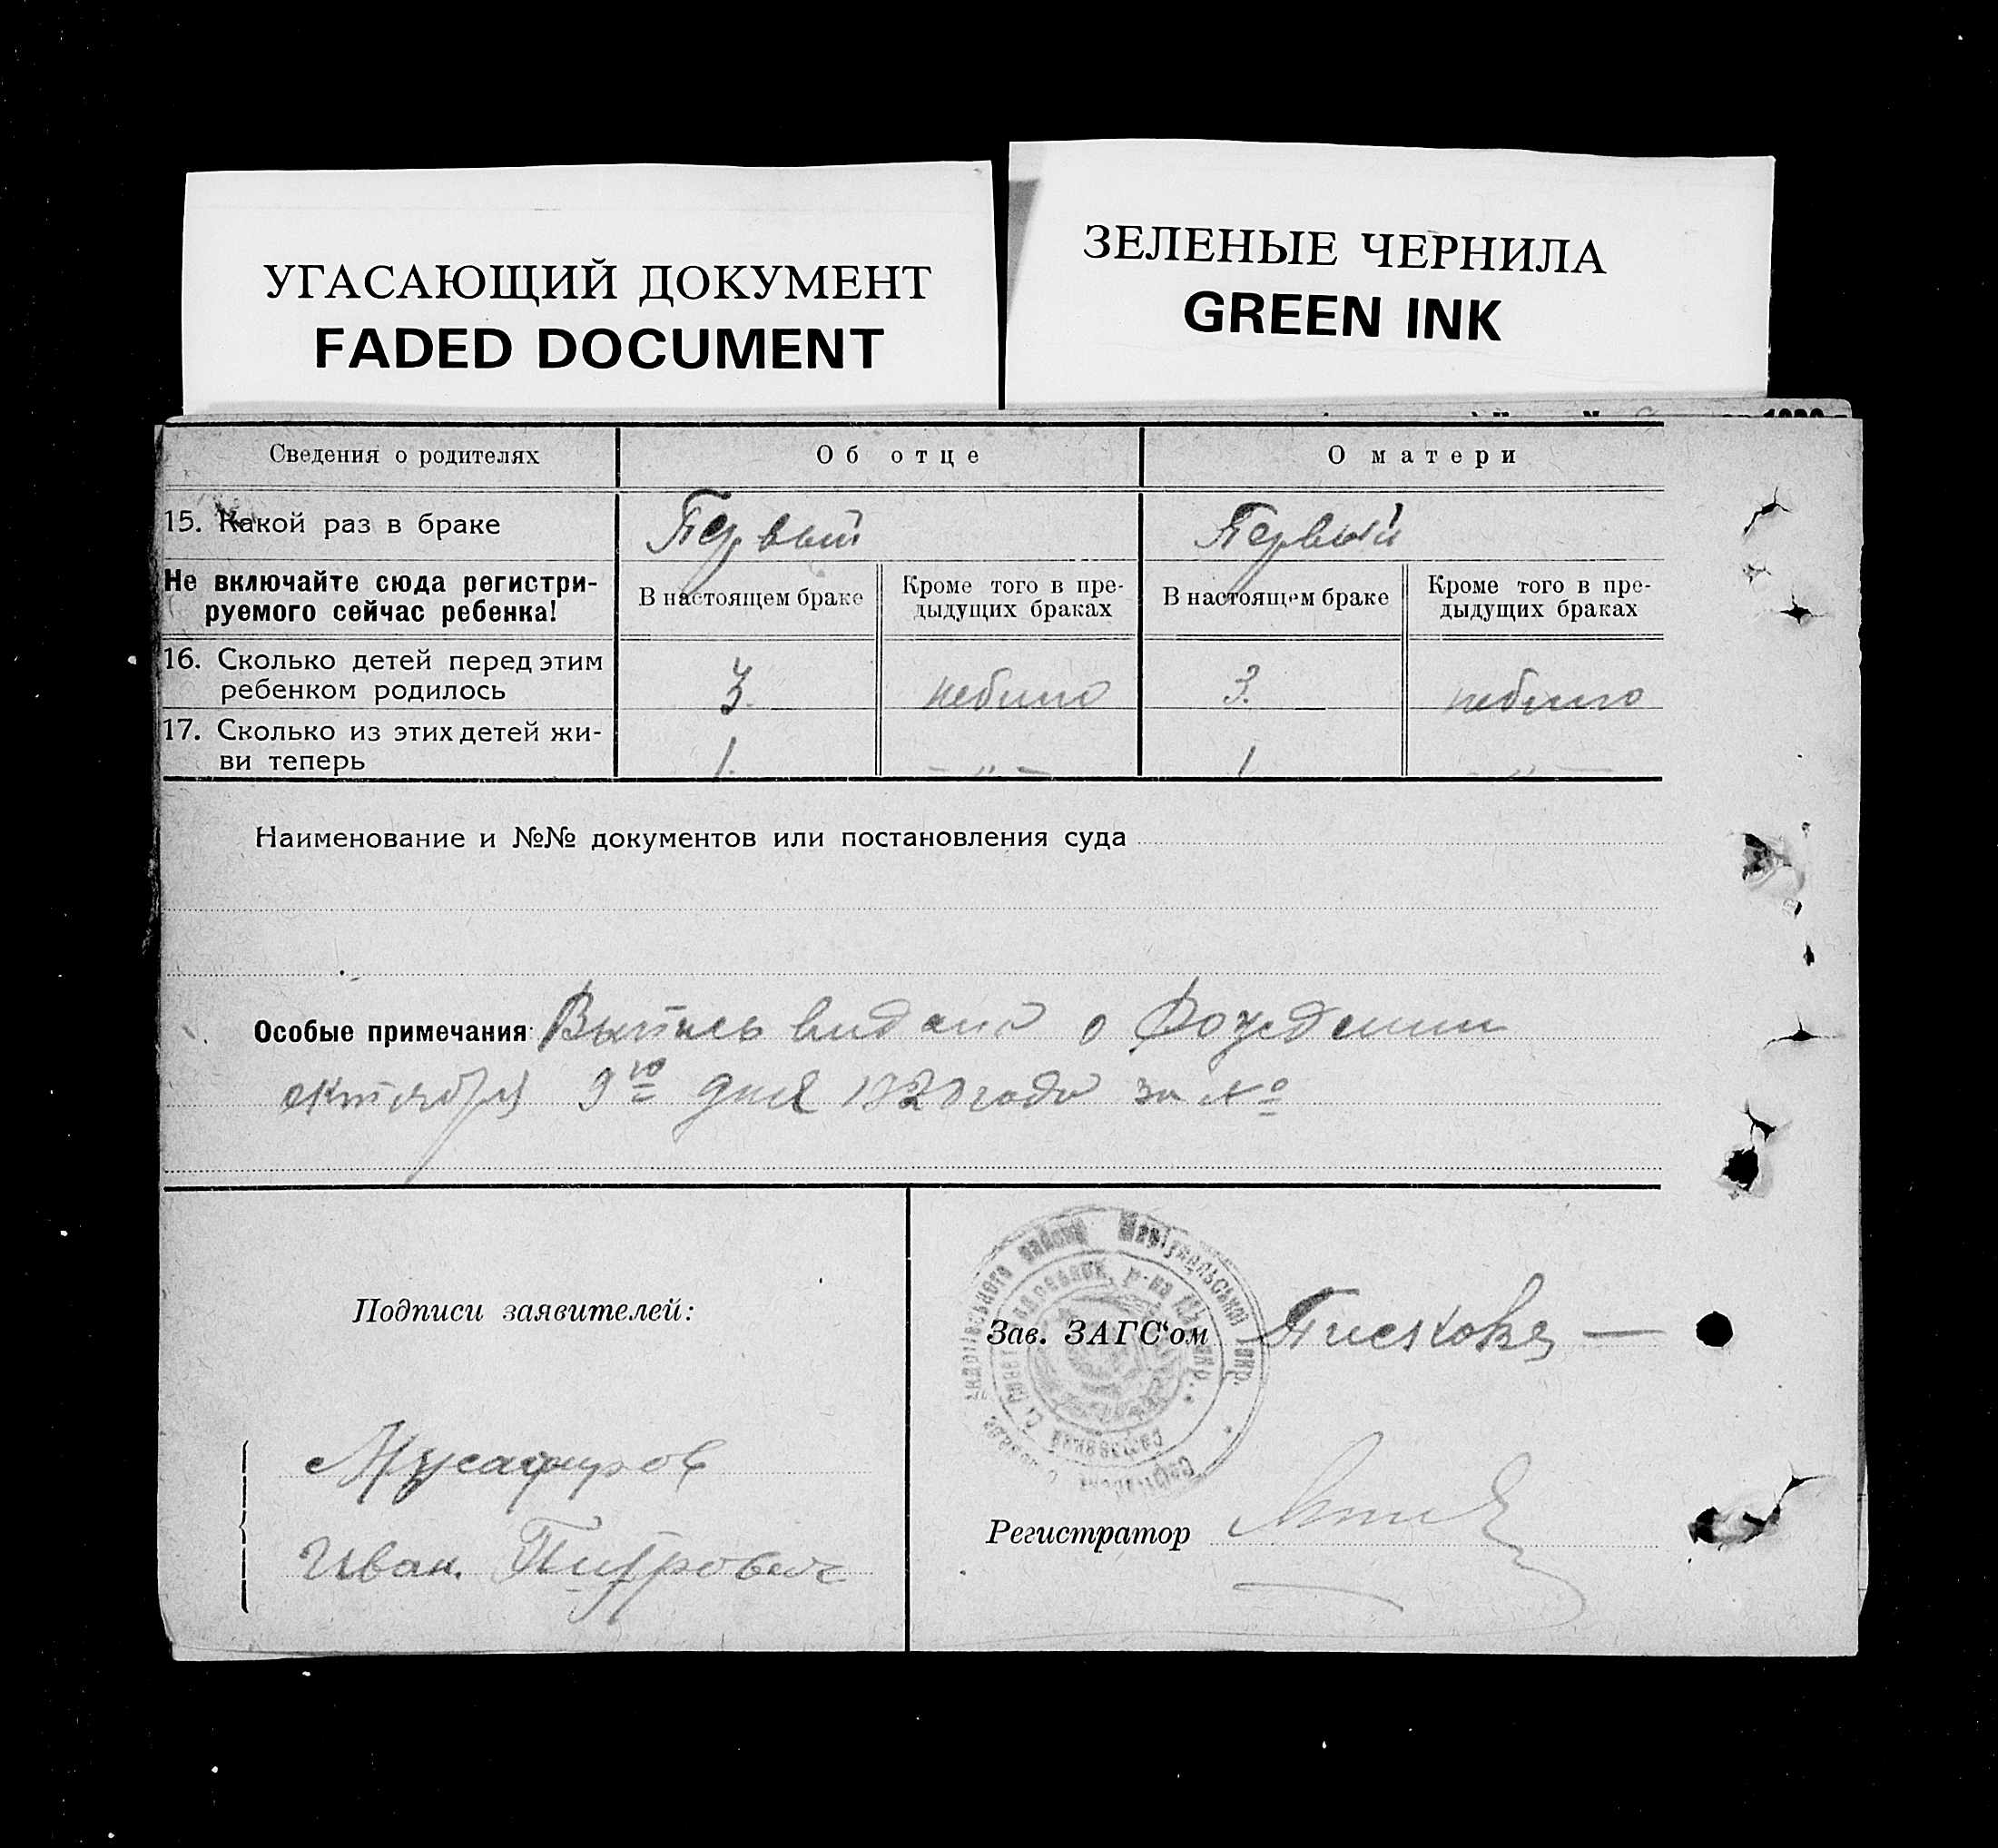 УГАСАЮЩИЙ ДОКУМЕНТ
FADED DOCUMENT
ЗЕЛЕНЫЕ ЧЕРНИЛА
GREEN INK
Сведения о родителях Об отце О матери
15. Какой раз в браке Первый Первый
Не включайте сюда регистри-
руемого сейчас ребенка!
В настоящем браке
Кроме того в пре-
дыдущих браках
В настоящем браке
Кроме того в пре-
дыдущих браках
16. Сколько детей перед этим
ребенком родилось 3. небило 3. небило
17. Сколько из этих детей жи-
ви теперь 1. - „ - 1 - „ -
Наименование и №№ документов или постановления суда
Особые примечания: Выпись видана о Рождении
октября 9го дня года за №
Подписи заявителей:
Мусафиров
Иван. Питрович
Зав. ЗАГС‘ом
Регистратор
району Маріупольської окр.